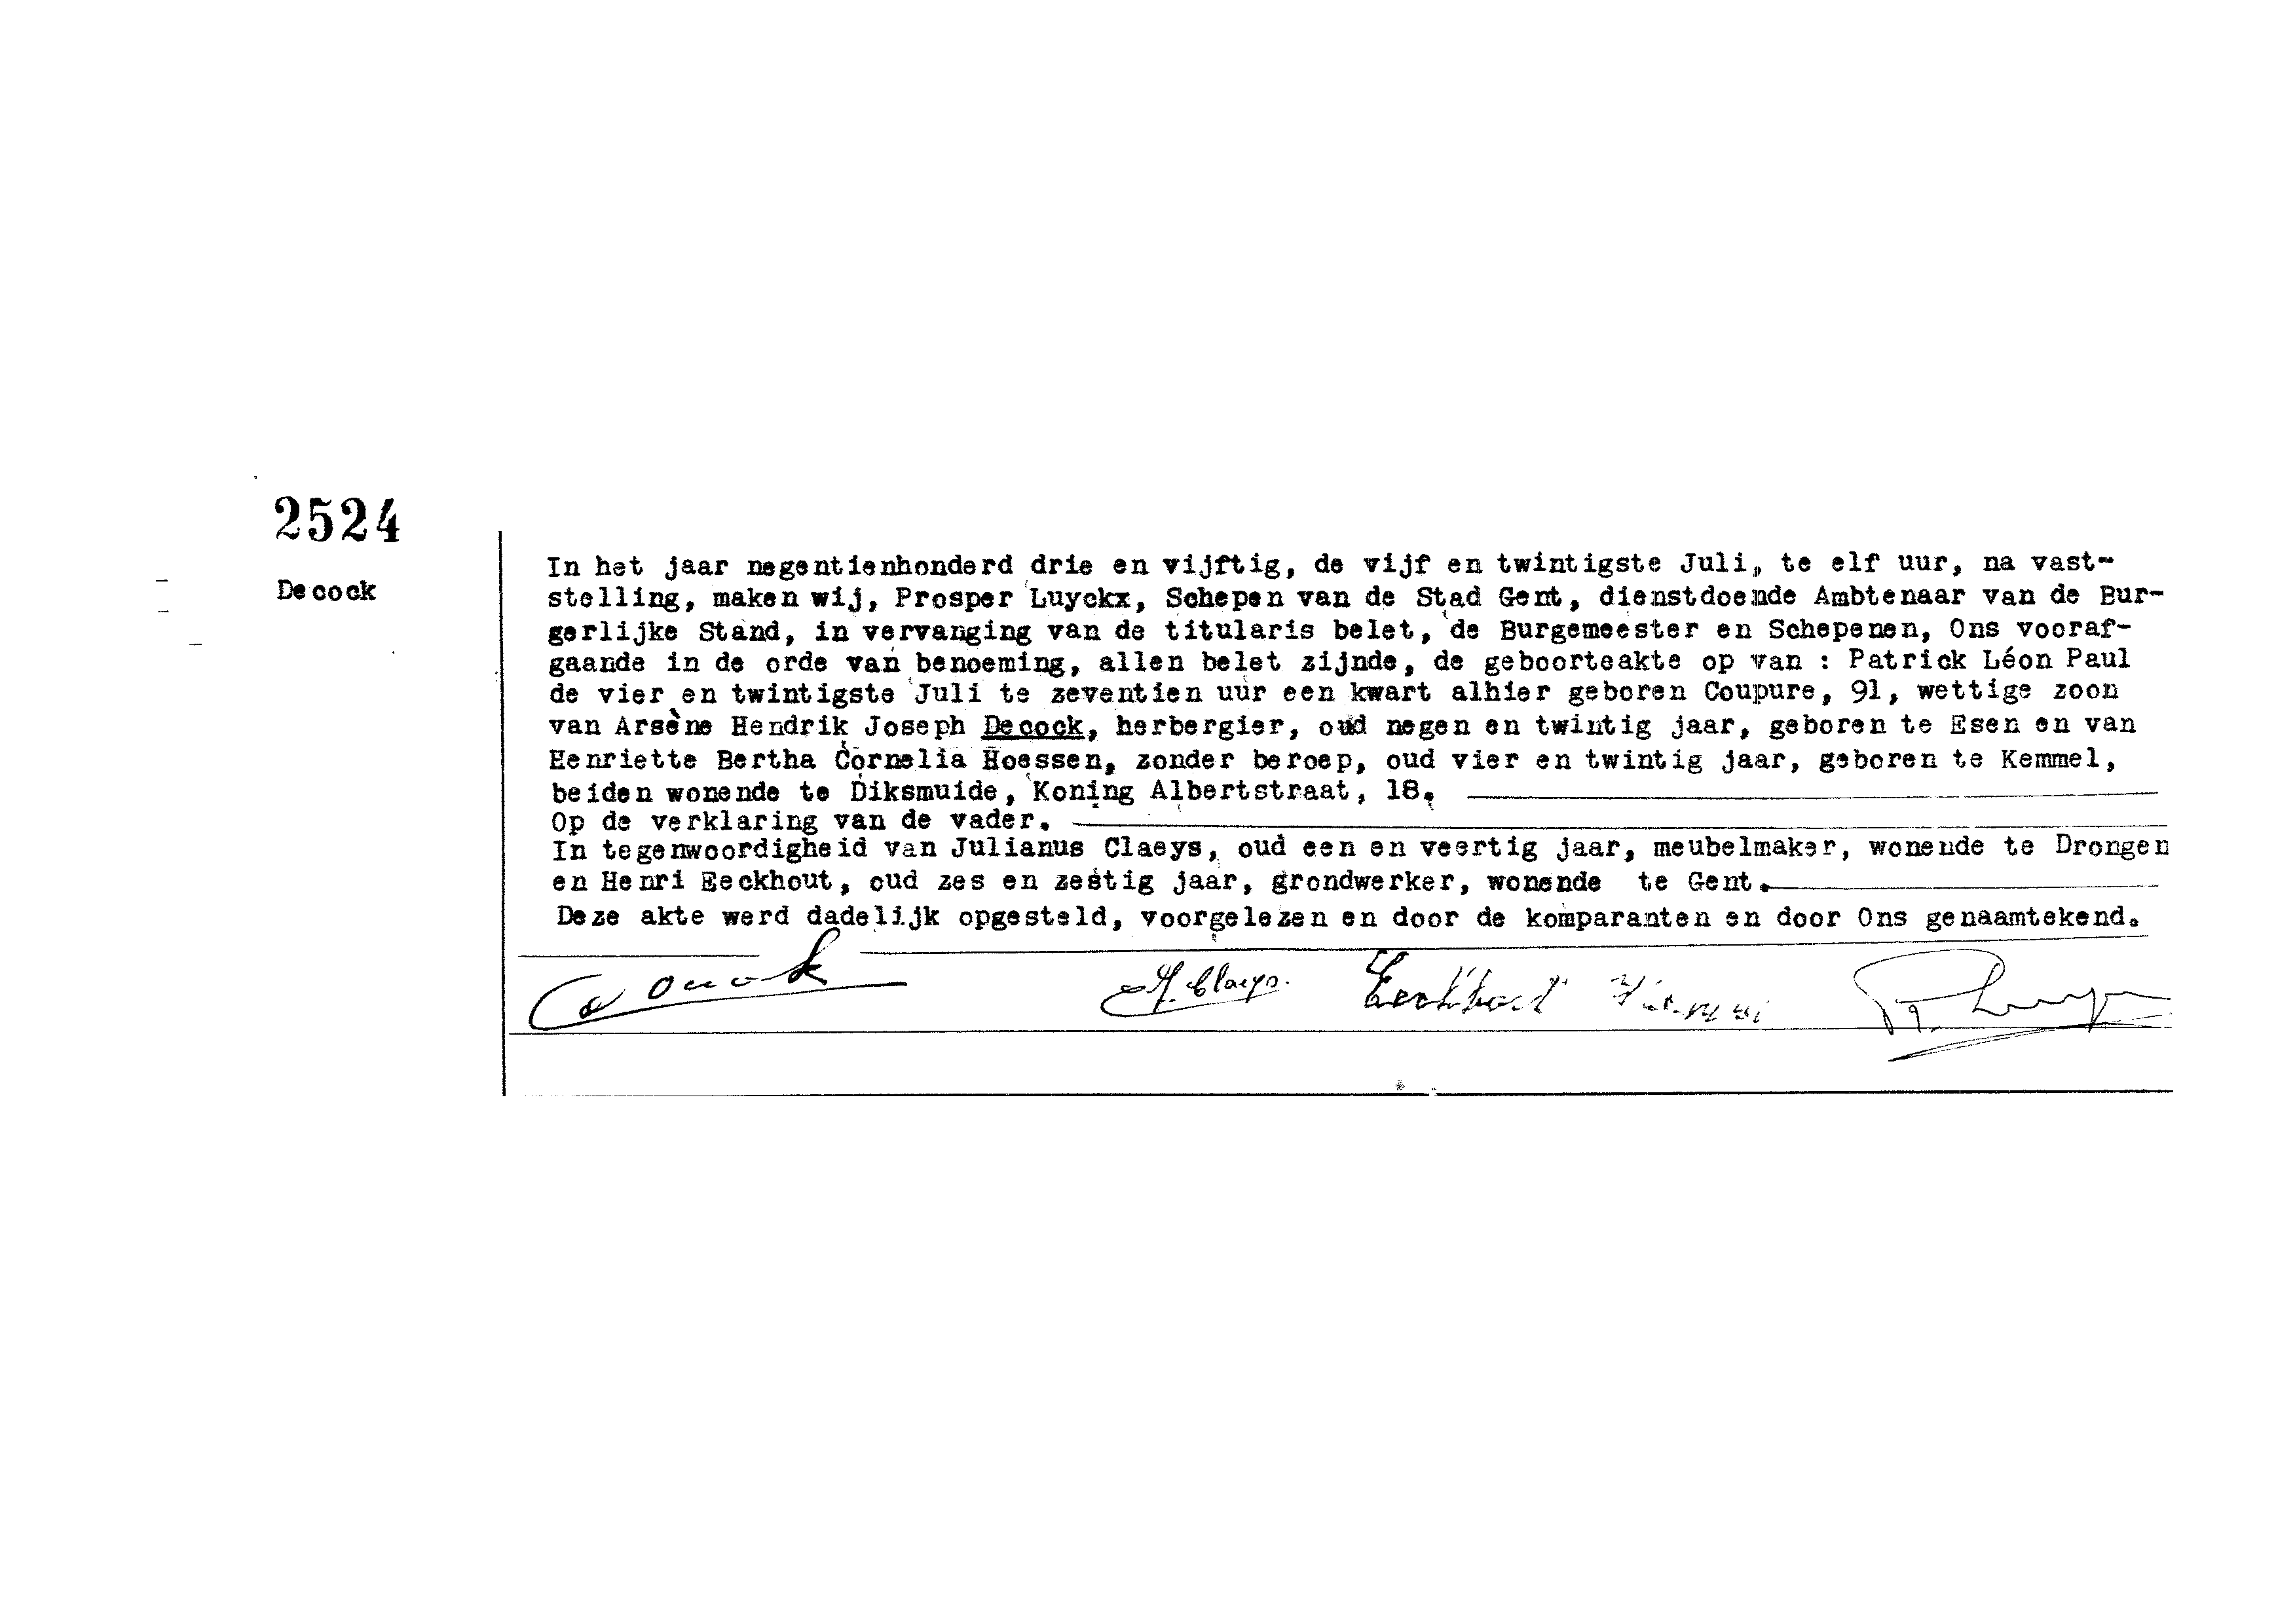 2524
Decock
In het jaar negentienhonderd drie en vijftig, de vijf en twintigste Juli, te elf uur, na vast-
stelling, maken wij, Prosper Luyckx, Schepen van de Stad Gent, dienstdoende Ambtenaar van de Bur-
gerlijke Stand, in vervanging van de titularis belet, de Burgemeester en Schepenen, Ons vooraf-
gaande in de orde van benoeming, allen belet zijnde, de geboorteakte op van : Patrick Léon Paul
de vier en twintigste Juli te zeventien uur een kwart alhier geboren Coupure, 91, wettige zoon
van Arsène Hendrik Joseph Decock, herbergier, oud negen en twintig jaar, geboren te Esen en van
Henriette Bertha Cornelia Hoessen, zonder beroep, oud vier en twintig jaar, geboren te Kemmel,
beiden wonende te Diksmuide, Koning Albertstraat, 18.
Op de verklaring van de vader.
In tegenwoordigheid van Julianus Claeys, oud een en veertig jaar, meubelmaker, wonende te Drongen
en Henri Eeckhout, oud zes en zestig jaar, grondwerker, wonende te Gent.
Deze akte werd dadelijk opgesteld, voorgelezen en door de komparanten en door Ons genaamtekend.
Claeys. Eeckhout